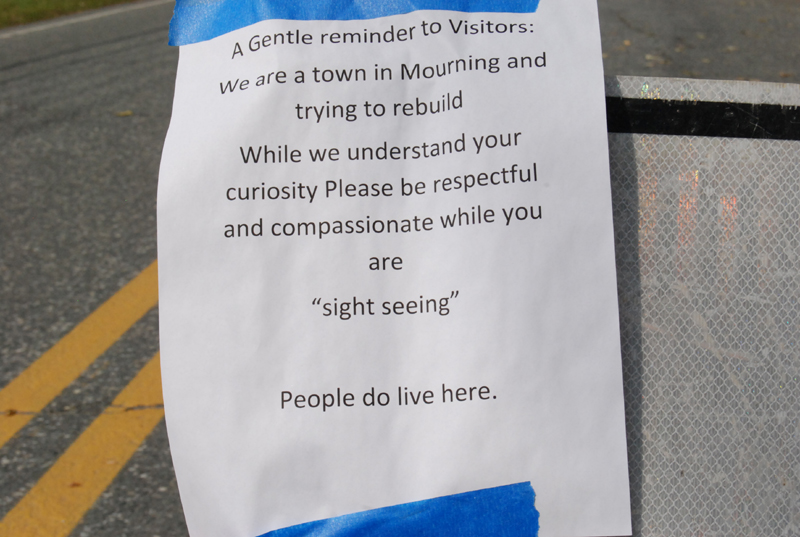 A Gentle reminder to Visitors:
We are a town in Mourning and
trying to rebuild
While we understand your
curiosity Please be respectful
and compassionate while you
are
“sight seeing”
People do live here.